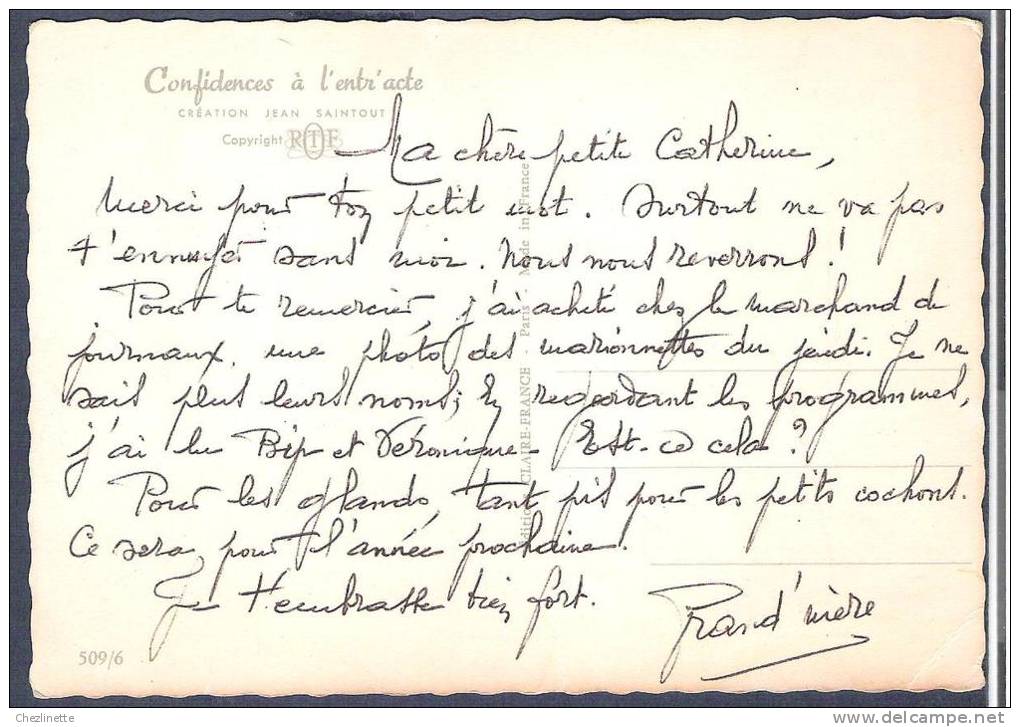 Confidences à l'entr'acte
CRÉATION JEAN SAINTOUT
Copyright RTF
Ma chère petite Catherine,
Merci pour ton petit mot. Surtout ne va pas
t'ennuyer sans moi. Nous nous reverrons!
Pour te remercier, j'ai acheté chez le marchand de
journaux, une photo des marionnettes du jeudi. Je ne
sais plus leurs noms; En regardant les programmes,
j'ai lu Bip et Véronique. Est-ce cela?
Pour les glands, tant pis pour les petits cochons.
Ce sera pour l'année prochaine.
Je t'embrasse bien fort.
Grand'mère
Editions CLAIRE-FRANCE - Paris - Made in France
509/6
Chezlinette
www.delcampe.net